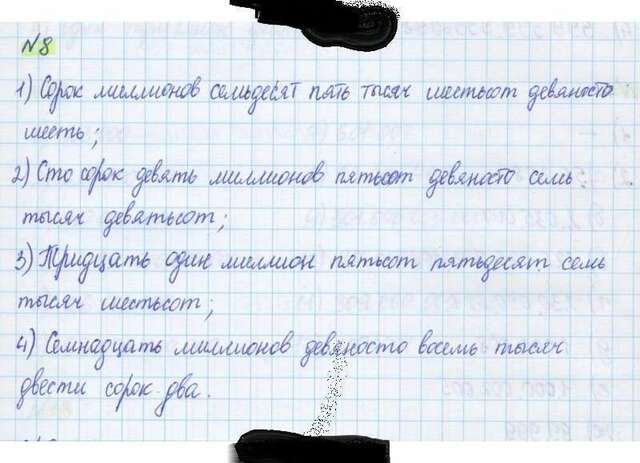 №8
1) Сорок миллионов семьдесят пять тысяч шестьсот девяносто
шесть;
2) Сто сорок девять миллионов пятьсот девяносто семь
тысяч девятьсот;
3) Тридцать один миллион пятьсот пятьдесят семь
тысяч шестьсот;
4) Семнадцать миллионов девяносто восемь тысяч
двести сорок два.